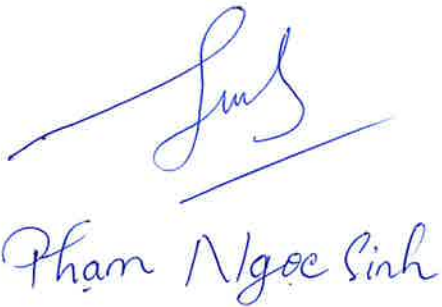 Sinh
Phạm Ngọc Sinh